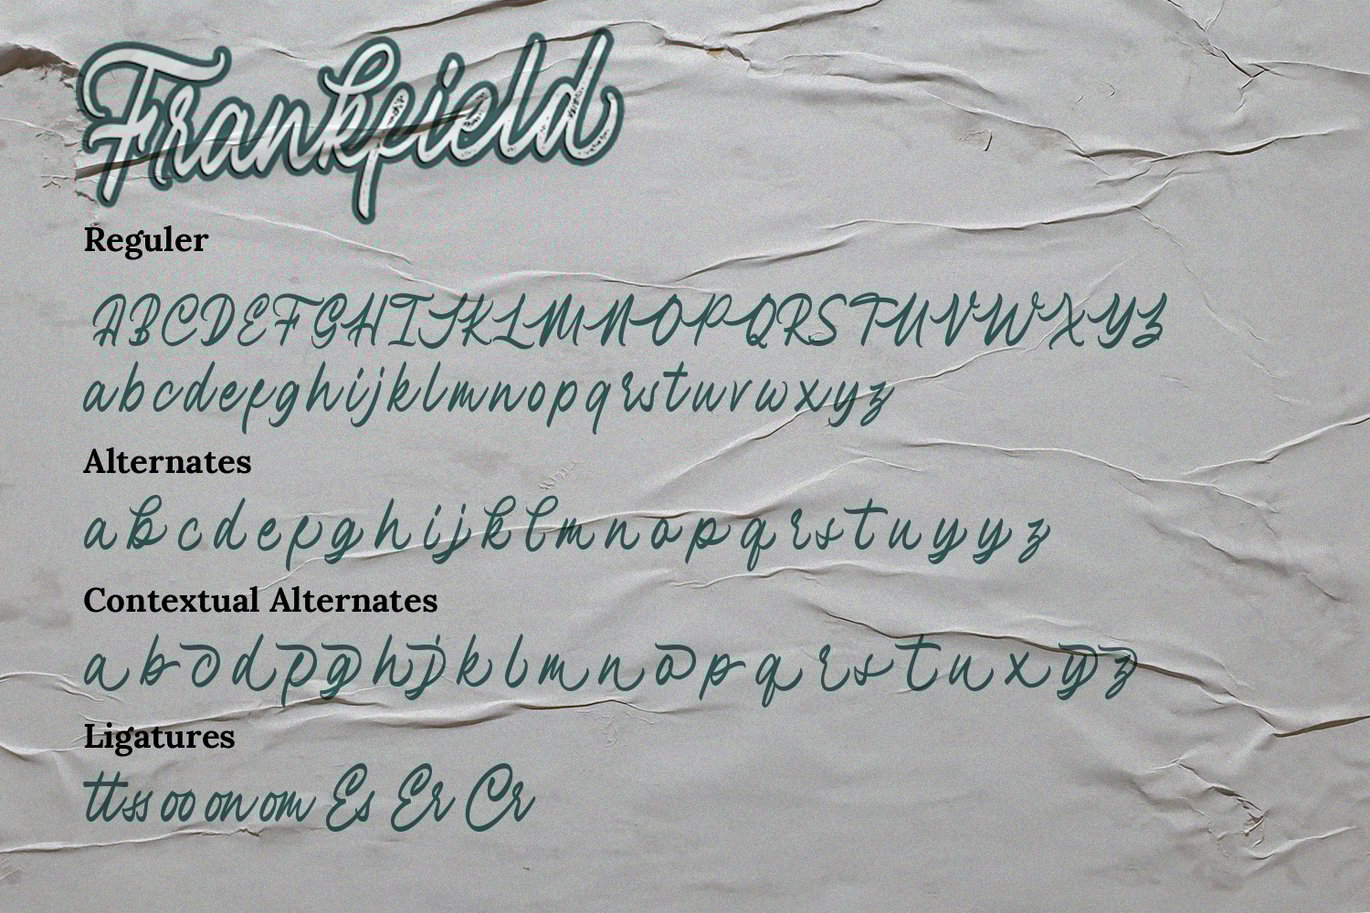 Frankfield
Reguler
ABCDEFGHIJKLMNOPQRSTUVWXYZ
abcdefghijklmnopqrstuvwxyz
Alternates
abcdefghijklmnopqrstuyyz
Contextual Alternates
abodpghjklmnopqrstuxyz
Ligatures
ttss oo on om Es Er Cr